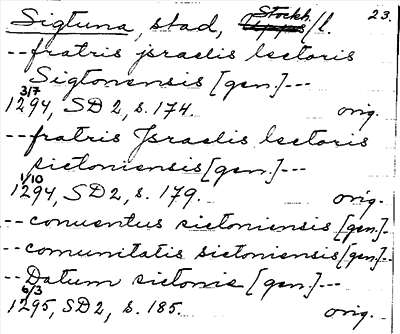 Sigtuna, stad, Stockh. l. 23.
--fratris jsraelis lectoris
Sigtonensis [gen.]---
3/7
1294, SD 2, s. 174. orig.
--fratris Jsraelis lectoris
sictoniensis [gen.]---
1/10
1294, SD 2, s. 179. orig.
--conuentus sictoniensis [gen.]-
--comunitatis sictoniensis [gen.]--
--Datum sictonie [gen.]---
6/3
1295, SD 2, s. 185. orig.